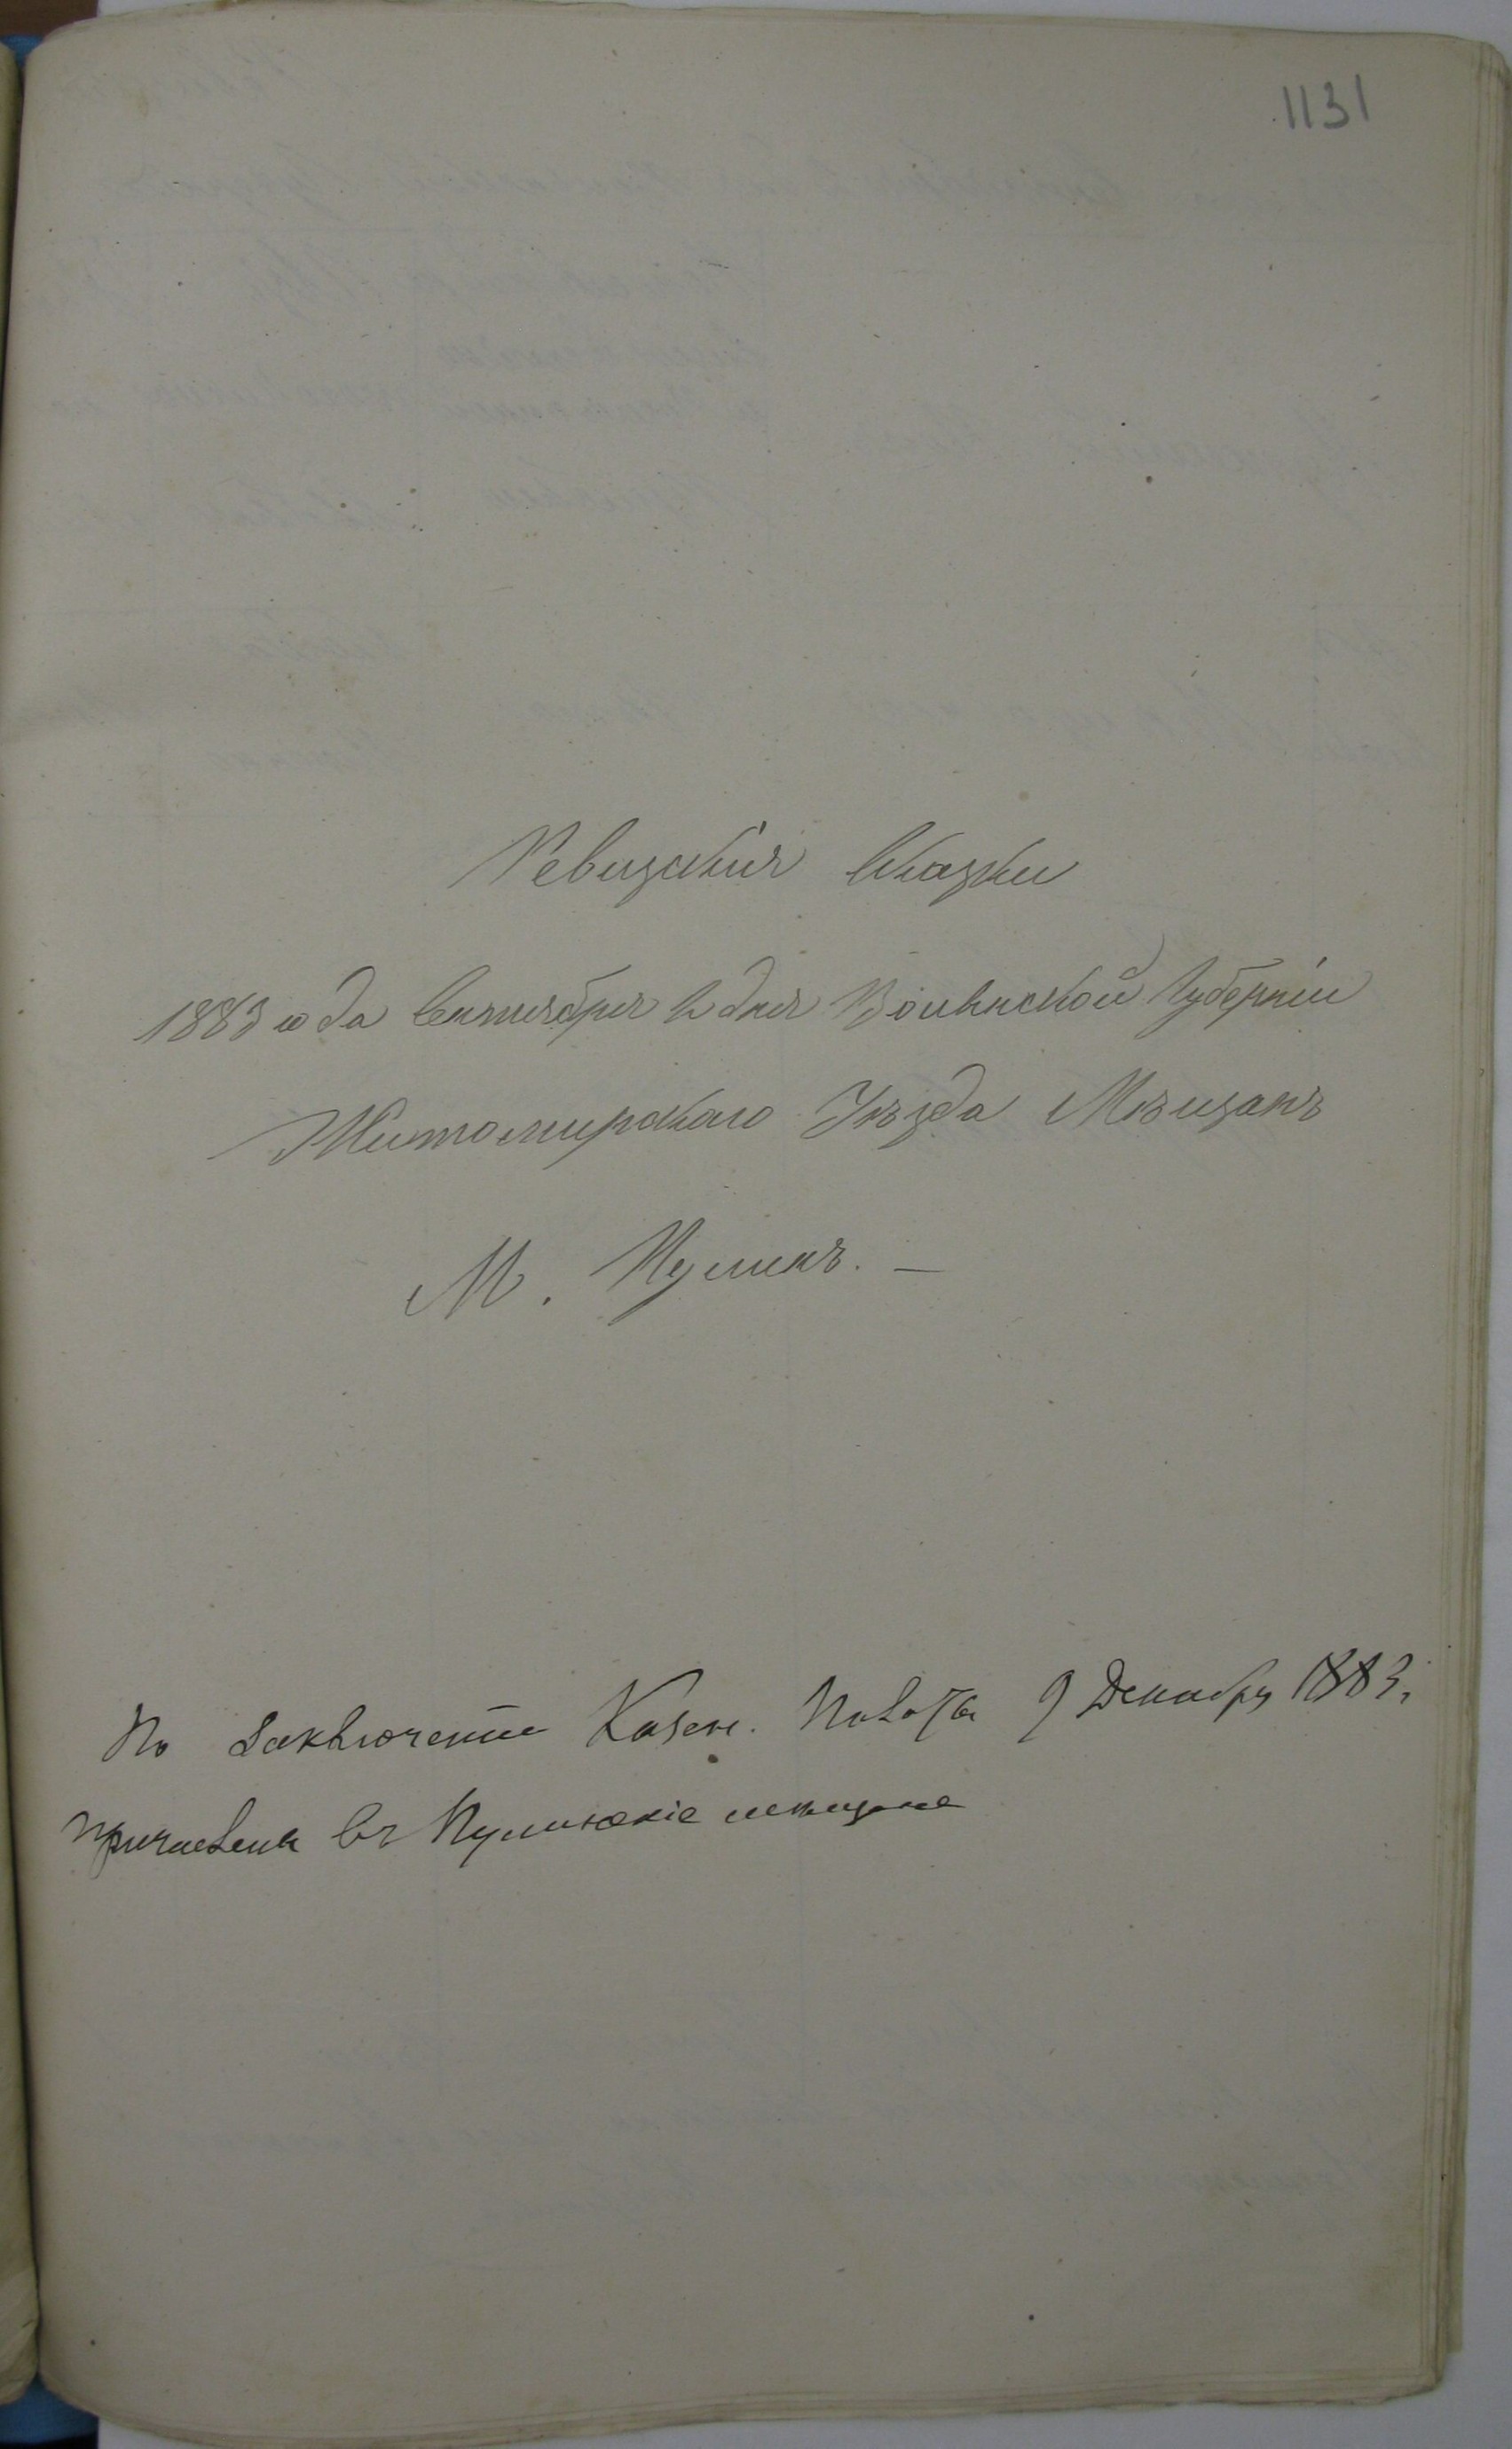 1131
Ревизскія Сказки
1883 года Сентября дня Волынской Губерніи
Житомирскаго Уѣзда Мѣщанъ
М. Пулинъ. —
По заключенію Казен. Палаты 9 Декабря 1883.
причислена въ Пулинскіе мѣщане